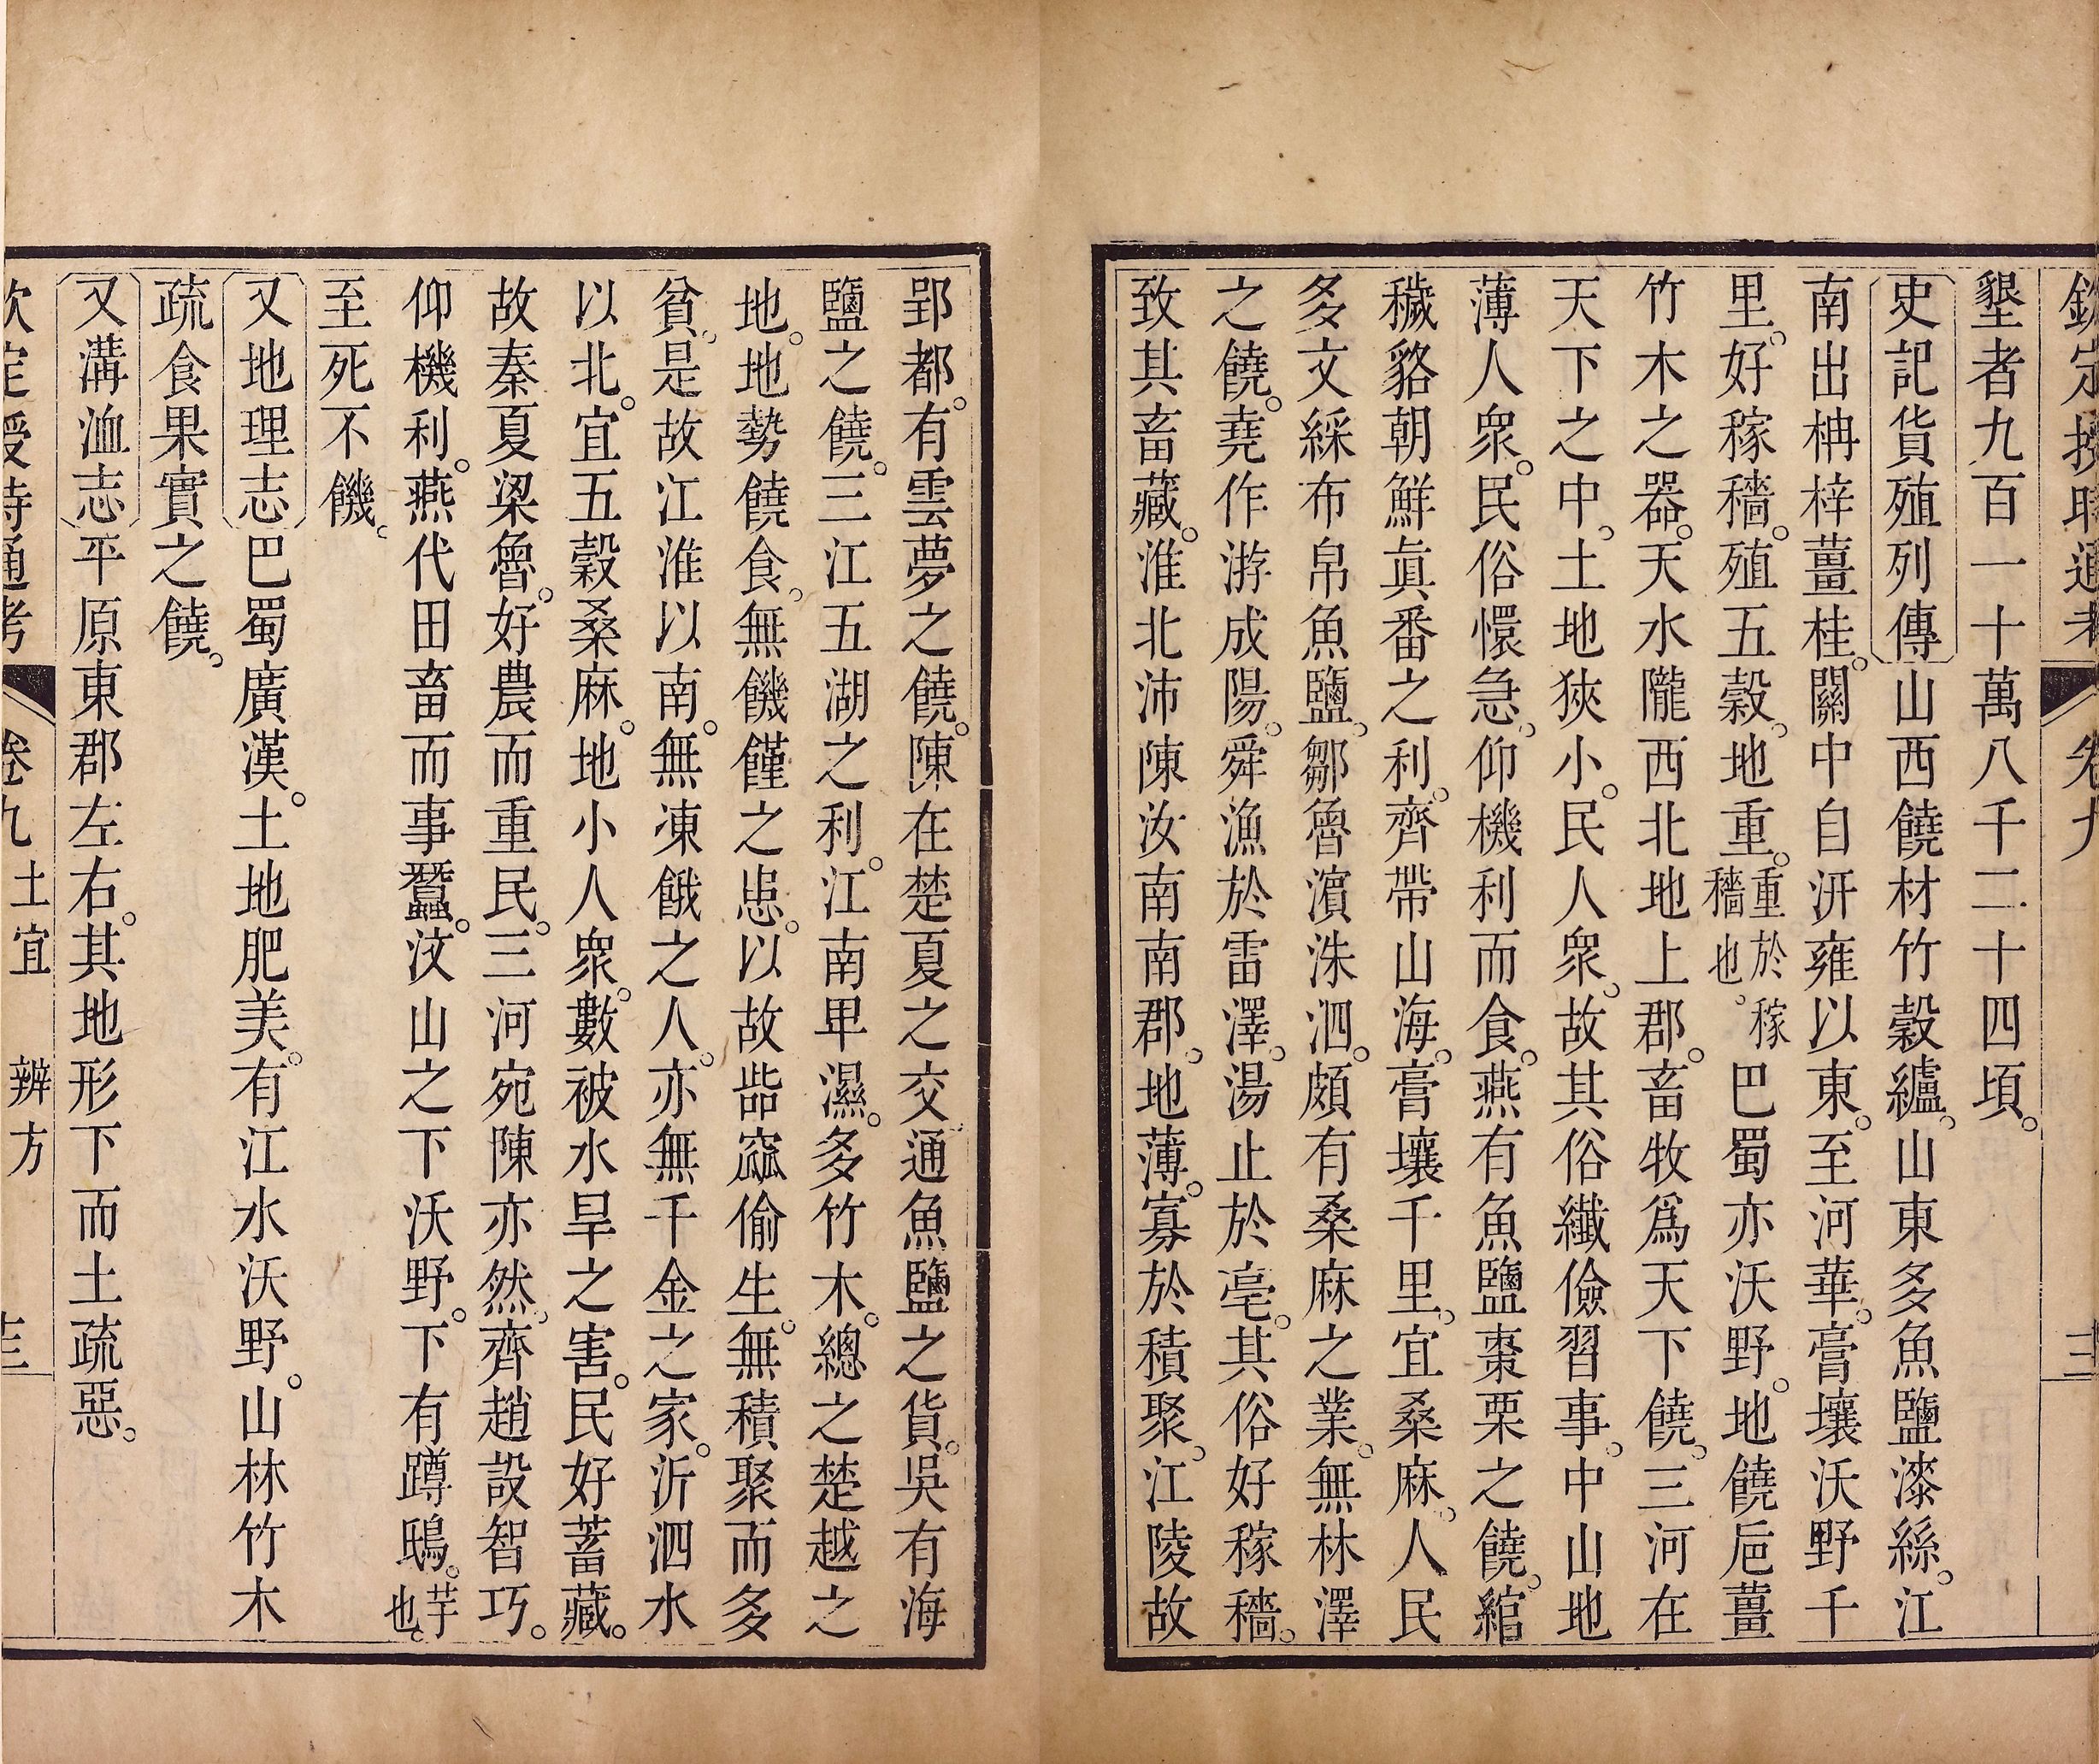 欽定授時通考 卷九 三
墾者九百一十萬八千二十四頃。
史記貨殖列傳山西饒材竹穀纑。山東多魚鹽漆絲。江
南出枏梓薑桂。關中自汧雍以東。至河華。膏壤沃野千
里。好稼穡。殖五穀。地重。重於稼穡也。巴蜀亦沃野。地饒巵薑
竹木之器。天水隴西北地上郡。畜牧爲天下饒。三河在
天下之中。土地狹小。民人衆。故其俗纖儉習事。中山地
薄人衆。民俗懁急。仰機利而食。燕有魚鹽棗栗之饒。綰
穢貉朝鮮眞番之利。齊帶山海。膏壤千里。宜桑麻。人民
多文綵布帛魚鹽。鄒魯濱洙泗。頗有桑麻之業。無林澤
之饒。堯作游成陽。舜漁於雷澤。湯止於亳。其俗好稼穡。
致其畜藏。淮北沛陳汝南南郡。地薄。寡於積聚。江陵故
郢都。有雲夢之饒。陳在楚夏之交通魚鹽之貨。吳有海
鹽之饒。三江五湖之利。江南卑濕。多竹木。總之楚越之
地。地勢饒食。無饑饉之患。以故呰窳偷生。無積聚而多
貧。是故江淮以南。無凍餓之人。亦無千金之家。沂泗水
以北。宜五穀桑麻。地小人衆。數被水旱之害。民好蓄藏。
故秦夏梁魯。好農而重民。三河宛陳亦然。齊趙設智巧。
仰機利。燕代田畜而事蠶。汶山之下沃野。下有蹲鴟。芋也。
至死不饑。
又地理志巴蜀廣漢。土地肥美。有江水沃野。山林竹木
疏食果實之饒。
又溝洫志平原東郡左右。其地形下而土疏惡。
欽定授時通考 卷九 土宜 辨方 三